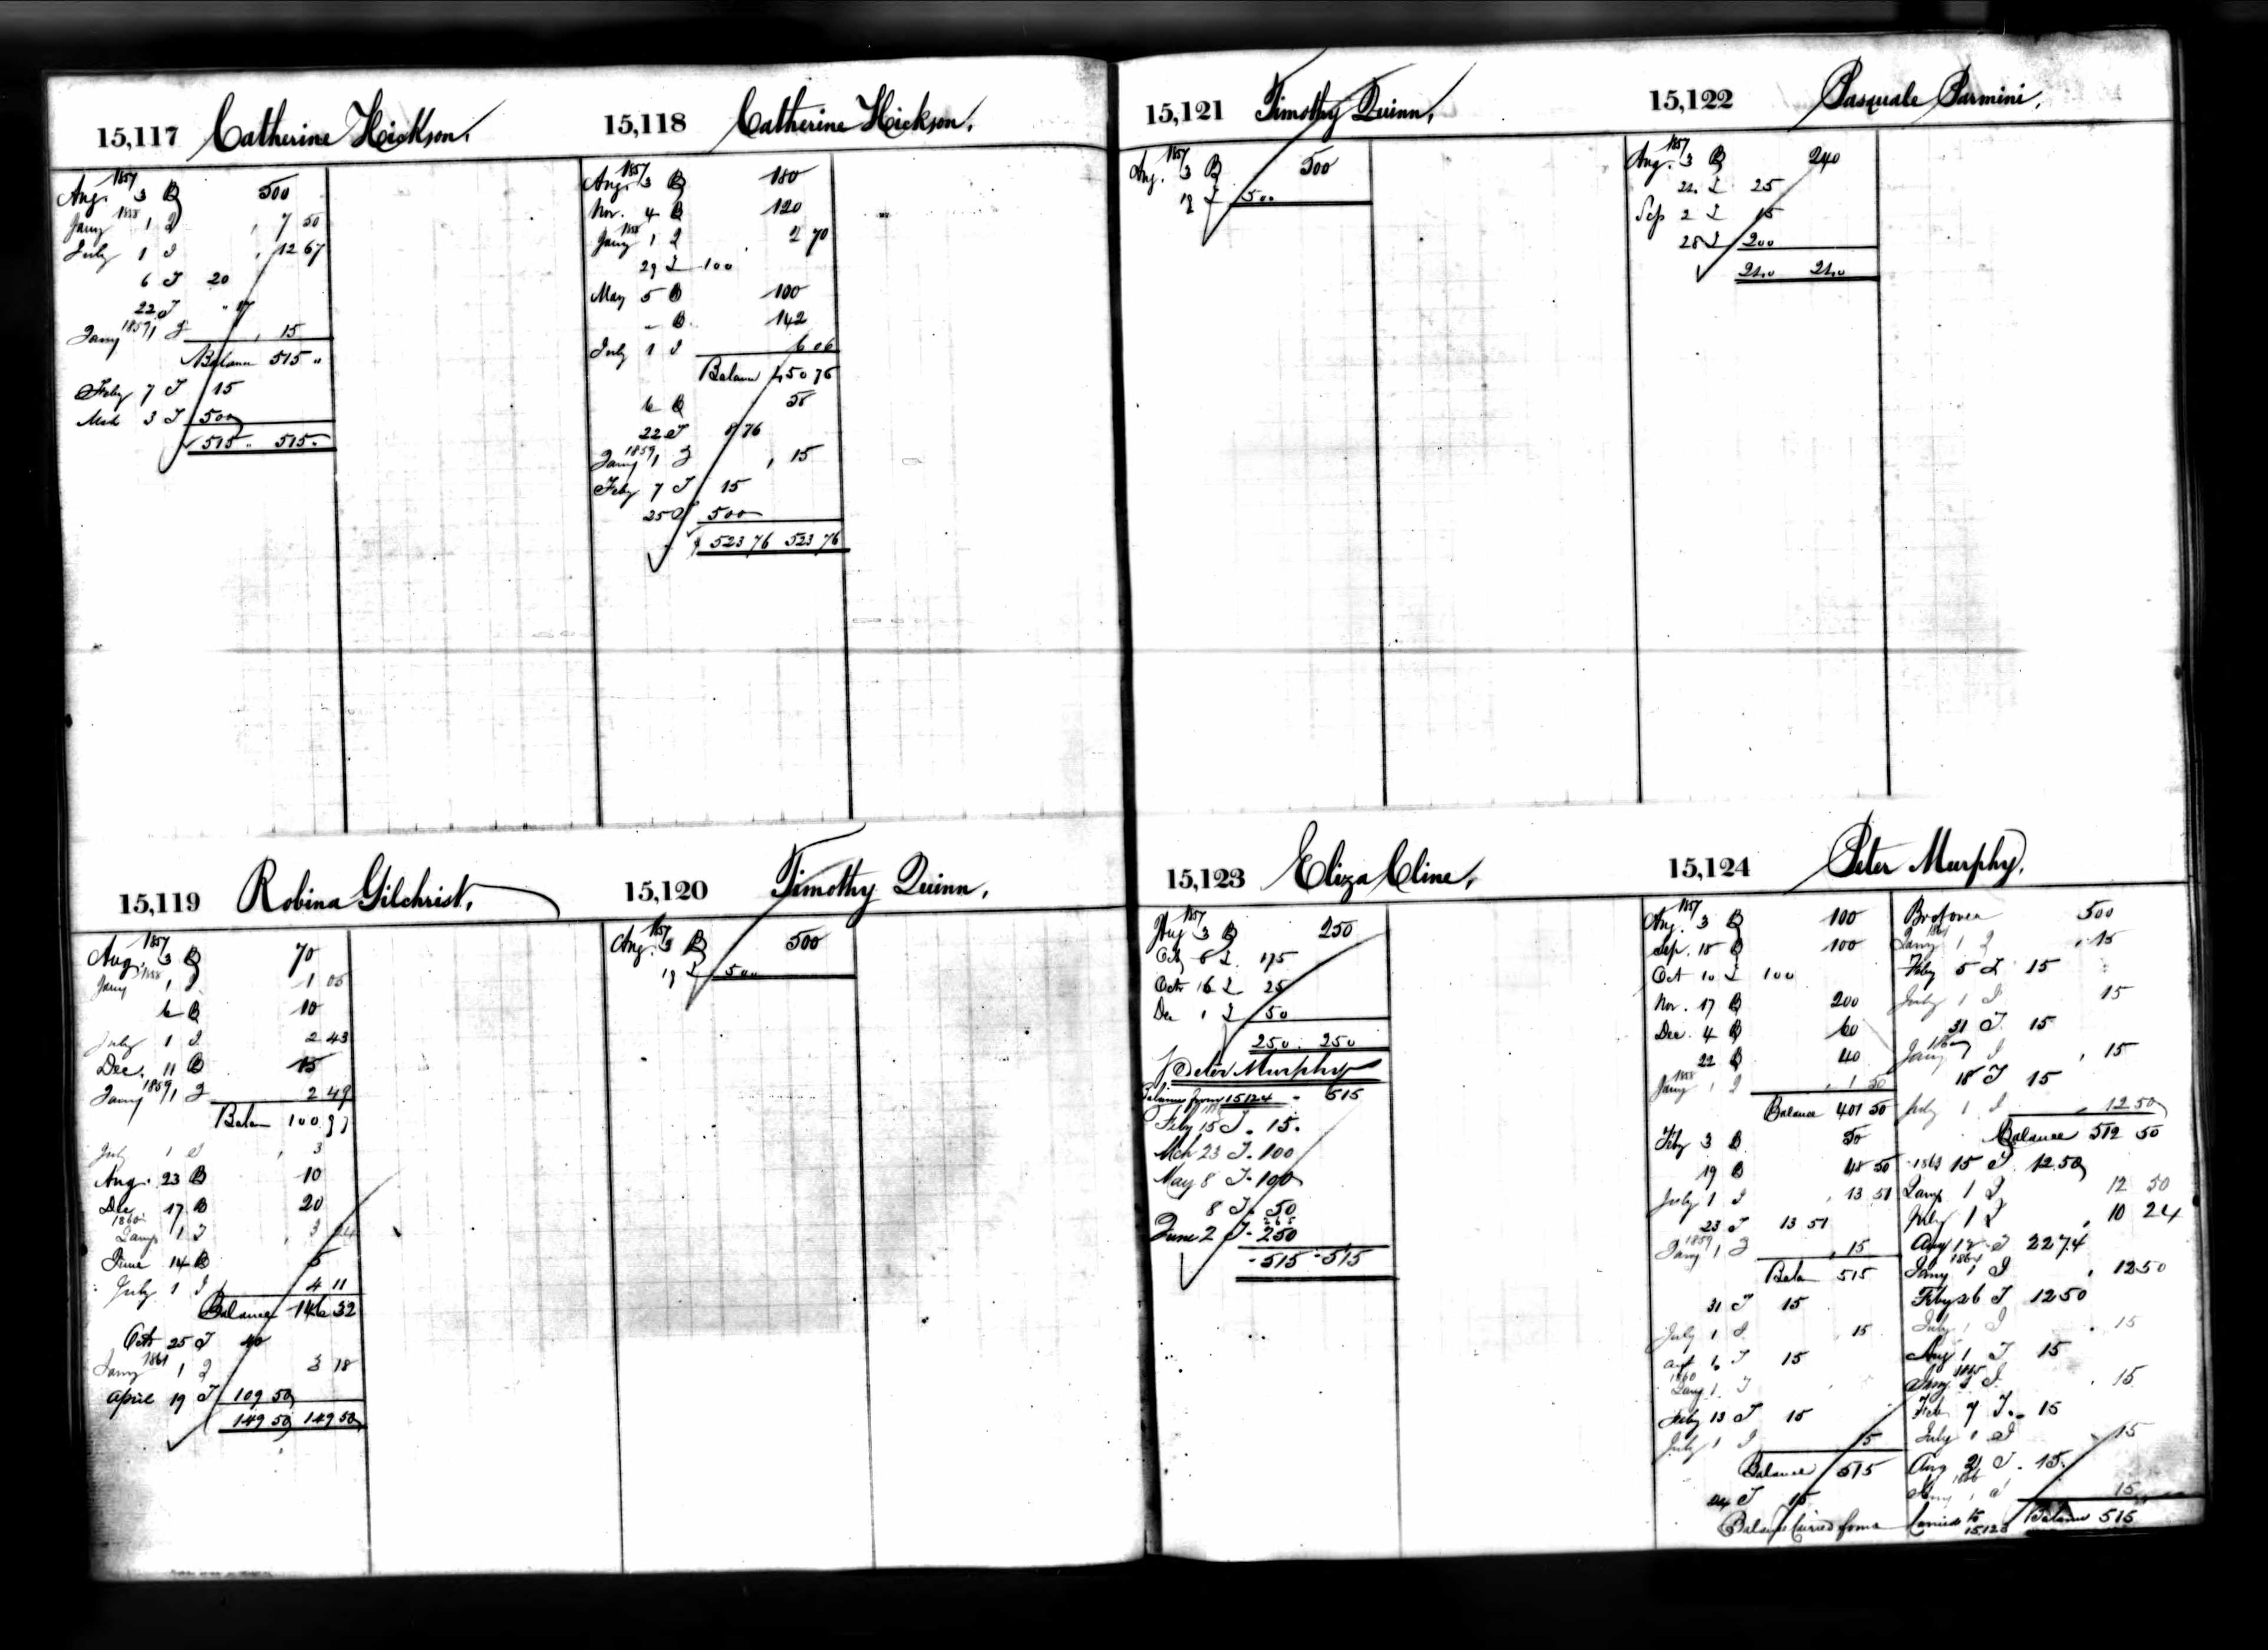 15,117 Catherine Hickson,
1857
Aug. 3 B 500
1858
Jany 1 I 7 50
July 1 I 12 67
6 T 20
22 T 17
Jany 1859 1 I 15
Balance 515 "
Feby 7 T 15
Mch 3 T 500
515 " 515 "
15,118 Catherine Hickson,
1857
Aug. 3 B 180
Nov. 4 B 120
1858
Jany 1 I 2 70
29 T 100
May 5 B 100
" B 142
July 1 I 6 06
Balance 450 76
6 B 58
22 T 8 76
1859
Jany 1 I 15
Feby 7 T 15
25 T 500
523 76 523 76
15,119 Robina Gilchrist,
1857
Aug. 3 B 70
1858
Jany 1 I 1 05
6 B 10
July 1 I 2 43
Dec. 11 B 15
Jany 1859 1 I 2 49
Balan 100 97
July 1 I 3
Aug. 23 B 10
Dec 17 B 20
1860
Jany 1 I 3 24
June 14 B 5
July 1 I 4 11
Balance 146 32
Octr 25 T 40
1861
Jany 1 I 3 18
April 19 T 109 50
149 50 149 50
15,120 Timothy Quinn,
1857
Aug. 3 B 500
19 T 500
15,121 Timothy Quinn,
1857
Aug. 3 B 500
19 T 500
15,122 Pasquale Parmini,
1857
Aug. 3 B 240
22 T 25
Sep 2 T 15
28 T 200
240 240
15,123 Eliza Cline,
1857
Aug 3 B 250
Oct 8 T 175
Octr 16 T 25
Dec 1 T 50
250 250
Peter Murphy
Balance from 15124 - 515
Feby 15 T. 15.
Mch 23 T. 100
May 8 T. 100
8 T. 50
265
June 2 T. 250
515 515
15,124 Peter Murphy,
1857
Aug. 3 B 100
Sep. 15 B 100
Oct 10 T 100
Nov. 17 B 200
Dec. 4 B 60
22 B 40
1858
Jany 1 I 1 50
Balance 401 50
Feby 3 B 50
19 B 48 50
July 1 I 13 51
23 T 13 51
1859
Jany 1 I 15
Balan 515
31 T 15
July 1 I 15
Aug 6 T 15
1860
Jany 1 I
Feby 13 T 15
July 1 I 15
Balance 515
24 T 15
Balance Carried forwd
Brot over 500
1861
Jany 1 I 15
Feby 5 T 15
July 1 I 15
31 T 15
Jany 1 I 15
18 T 15
July 1 I 12 50
Balance 512 50
15 T 12 50
1863
Jany 1 I 12 50
July 1 I 10 24
Aug 12 T 22 74
1864
Jany 1 I 12 50
Feby 26 T 12 50
July 1 I 15
Aug 1 T 15
1865
Jany 1 I 15
Feb 7 T. 15
July 1 I 15
Aug 21 T. 15.
1866
Jany 1 I 15
Carried to 15.123 Balance 515